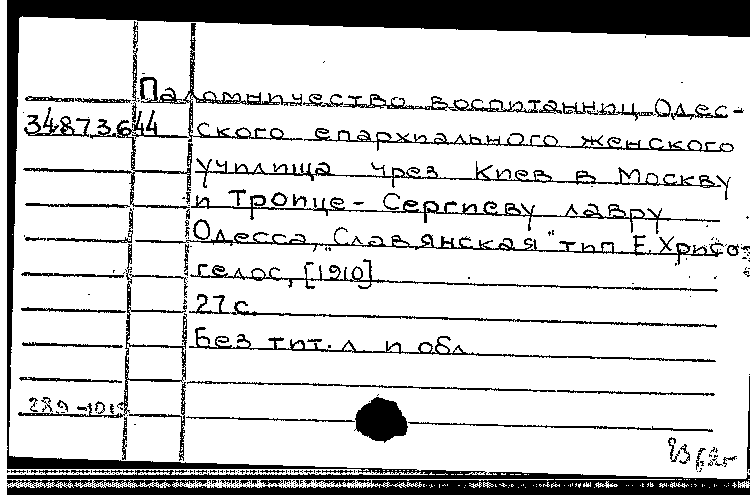 Паломничество воспитанниц Одес-
34873644 ского епархиального женского
училища чрез Киев в Москву
и Троице-Сергиеву лавру
Одесса, "Славянская" тип Е. Хрисо
гелос, [1910]
27 с.
Без тит. л и обл